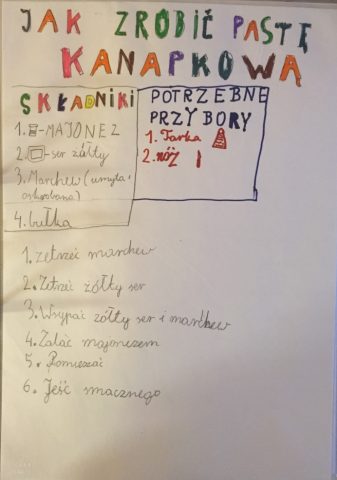 JAK ZROBIĆ PASTĘ
KANAPKOWĄ
SKŁADNIKI
1. -MAJONEZ
2. -ser żółty
3. Marchew (umyta i
oskrobana)
4. bułka
POTRZEBNE
PRZYBORY
1. Tarka
2. nóż
1. zetrzeć marchew
2. Zetrzeć żółty ser
3. Wsypać żółty ser i marchew
4. Zalać majonezem
5. Pomieszać
6. Jeść smacznego